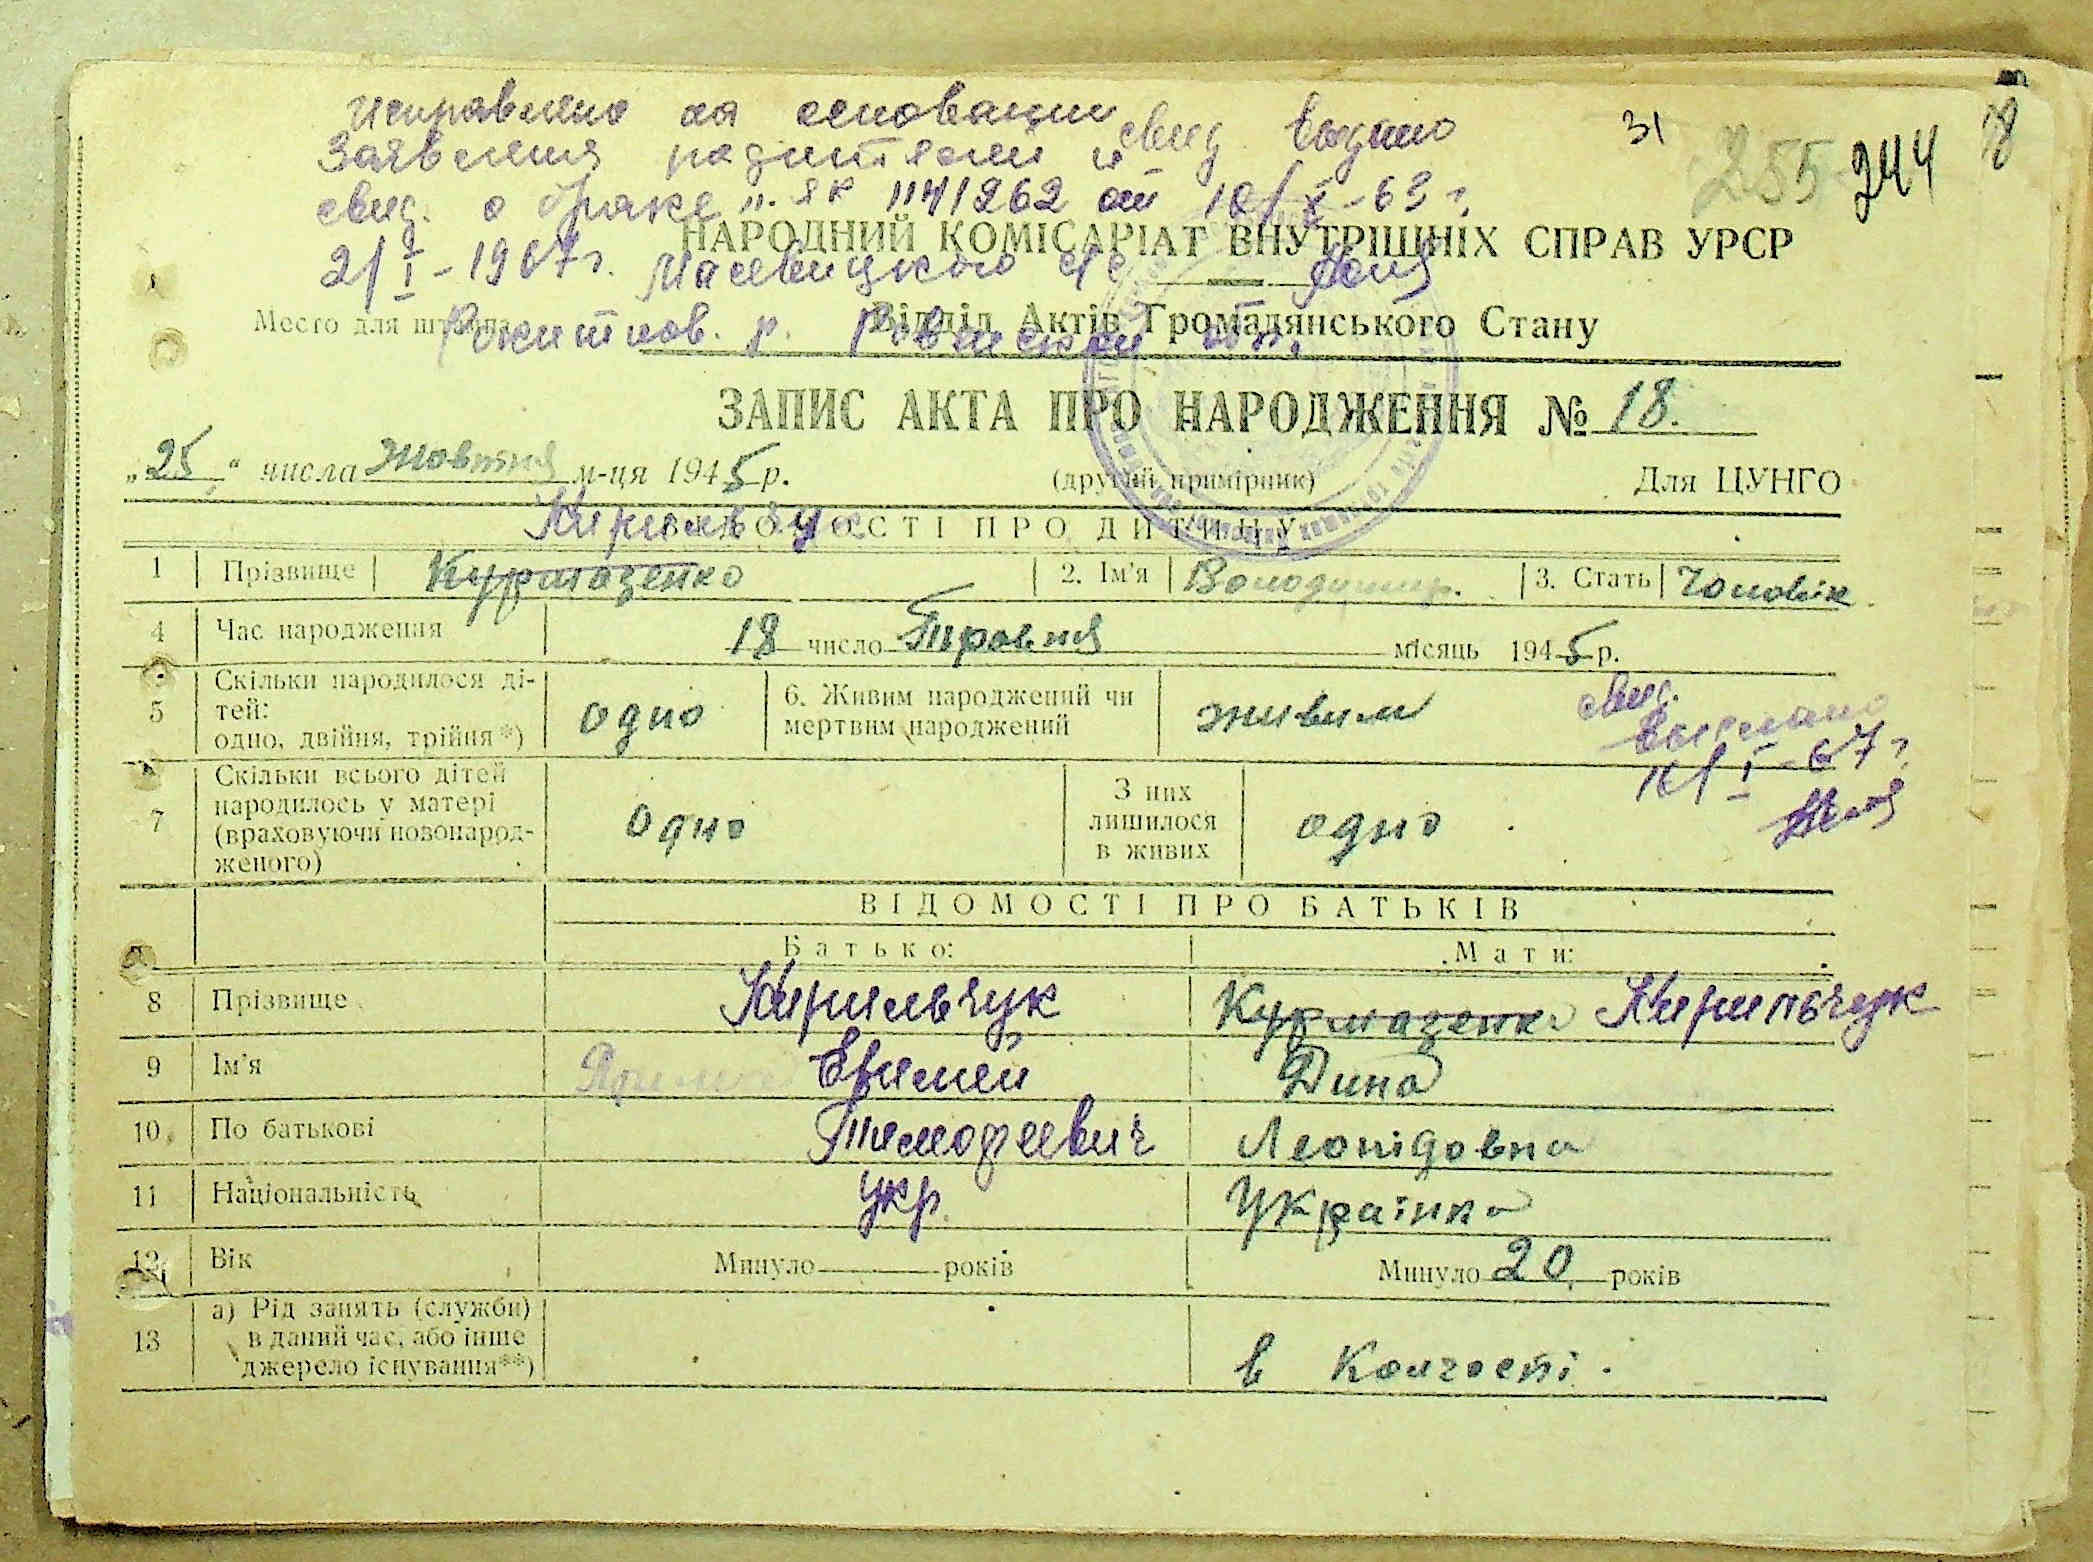 Исправлено на основании
Заявления родителей и свид. выдано
свид. о браке н. ЯК 1141262 от 10/X-63 г.
31
255 244
18
НАРОДНИЙ КОМІСАРІАТ ВНУТРІШНІХ СПРАВ УРСР
2/I-1967 г. Масевицкого с/с
Место для штампа
Відділ Актів Громадянського Стану
Рокитнов. р. Ровенской обл.
ЗАПИС АКТА ПРО НАРОДЖЕННЯ № 18.
„25“ числа Жовтня м-ця 1945 р. (другий примірник) Для ЦУНГО
Кирильчук
ВІДОМОСТІ ПРО ДИТИНУ
1 Прізвище Курмазенко 2. Ім'я Володимир. 3. Стать Чоловік.
4 Час народження 18 число Травня місяць 1945 р.
5 Скільки народилося ді-
тей:
одно, двійня, трійня*) одно 6. Живим народжений чи
мертвим народжений живим
свид.
выслано
I-67 г.
7 Скільки всього дітей
народилось у матері
(враховуючи новонарод-
женого) одно З них
лишилося
в живих одно
ВІДОМОСТІ ПРО БАТЬКІВ
Батько: Мати:
8 Прізвище Кирильчук Курмазенко Кирильчук
9 Ім'я Ефимей Дина
10 По батькові Тимофеевич Леонідовна
11 Національність укр. Українка
12 Вік Минуло років Минуло 20 років
13 а) Рід занять (служби)
в даний час, або інше
джерело існування**) в Колгоспі.